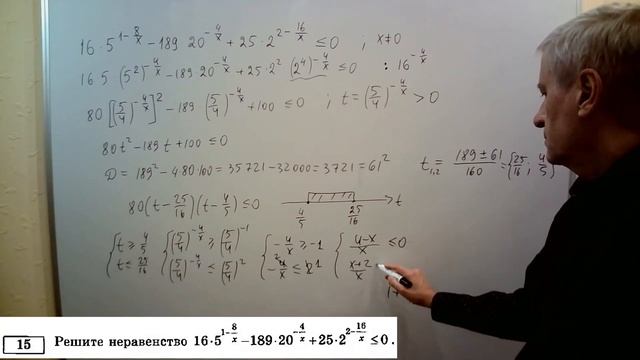 16·5^{1-8/x} - 189·20^{-4/x} + 25·2^{2-16/x} ≤ 0 ; x≠0
16·5(5²)^{-4/x} - 189·20^{-4/x} + 25·2²(2⁴)^{-4/x} ≤ 0 : 16^{-4/x}
80[(5/4)^{-4/x}]² - 189(5/4)^{-4/x} + 100 ≤ 0 ; t = (5/4)^{-4/x} > 0
80t² - 189t + 100 ≤ 0
D = 189² - 4·80·100 = 35721 - 32000 = 3721 = 61²
t₁,₂ = (189 ± 61)/160 = {25/16; 4/5}
80(t - 25/16)(t - 4/5) ≤ 0 4/5 25/16 t
{ t ≥ 4/5 { (5/4)^{-4/x} ≥ (5/4)^{-1} { -4/x ≥ -1 { (4-x)/x ≤ 0
t ≤ 25/16 (5/4)^{-4/x} ≤ (5/4)² -4/x ≤ 2 1 (x+2)/x
15 Решите неравенство 16·5^{1-8/x} - 189·20^{-4/x} + 25·2^{2-16/x} ≤ 0.